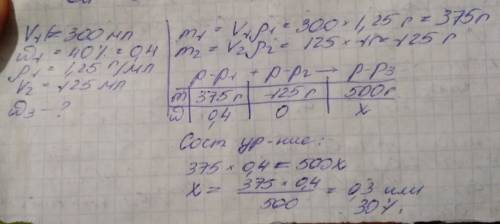 V₁ = 300 мл
ω₁ = 40% = 0,4
ρ₁ = 1,25 г/мл
V₂ = 125 мл
ω₃ - ?
m₁ = V₁ρ₁ = 300 × 1,25 г = 375 г
m₂ = V₂ρ₂ = 125 × 1 г = 125 г
р-р₁ + р-р₂ → р-р₃
m 375 г 125 г 500 г
ω 0,4 0 x
Сост ур-ние:
375 × 0,4 = 500x
x = 375 × 0,4 / 500 = 0,3 или
30%